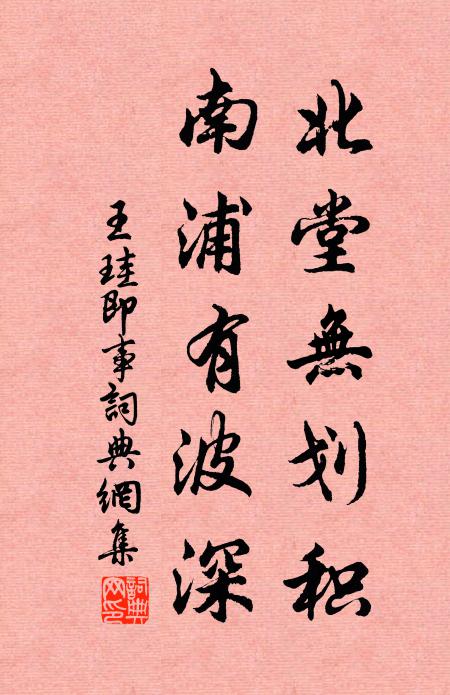 北堂無划积
南浦有波深
王珪即事詞典網集
詞典